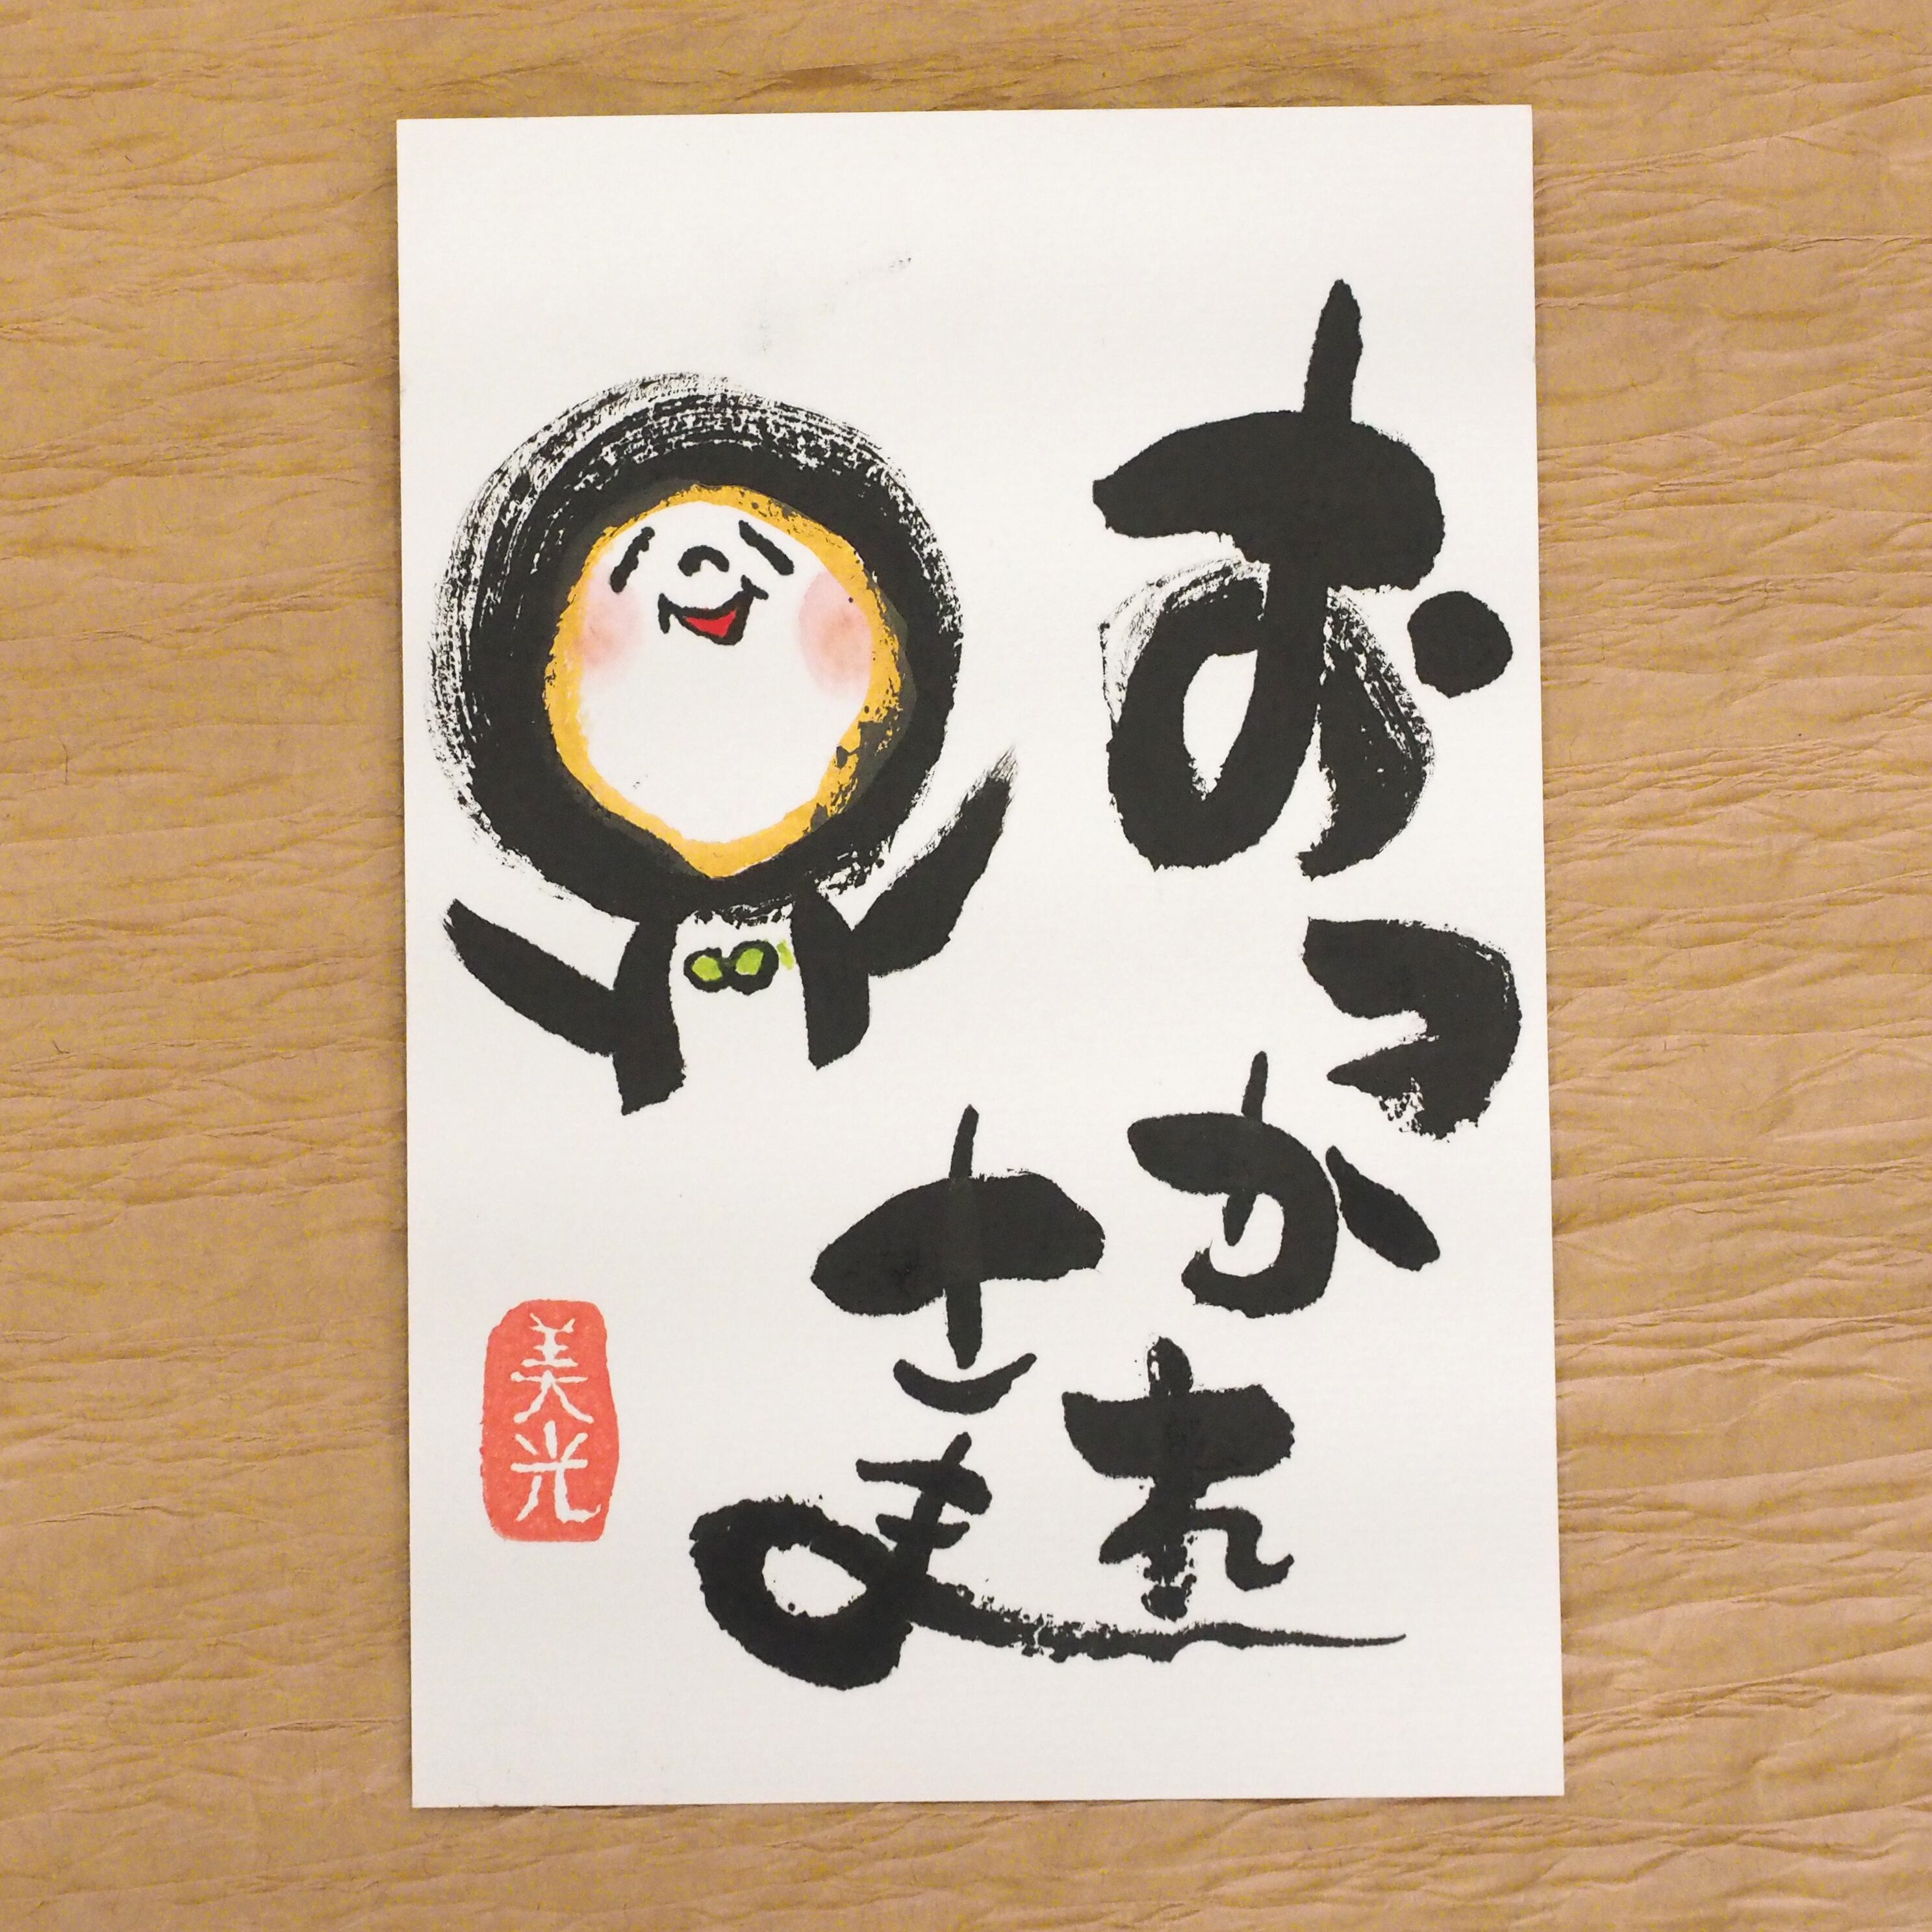 おつかれ
さま
美光